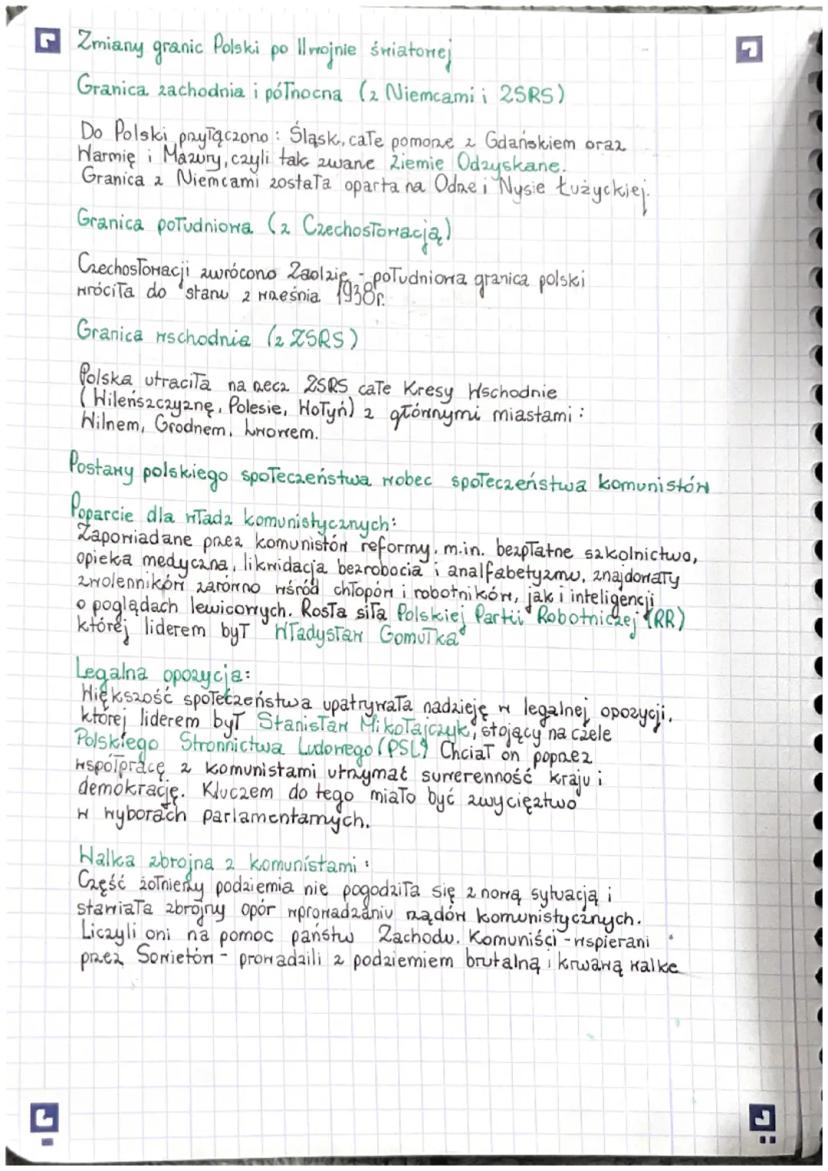 Zmiany granic Polski po II wojnie światowej
Granica zachodnia i północna (z Niemcami i ZSRS)
Do Polski przyłączono: Śląsk, całe pomorze z Gdańskiem oraz
Warmię i Mazury, czyli tak zwane Ziemie Odzyskane.
Granica z Niemcami została oparta na Odrze i Nysie Łużyckiej.
Granica południowa (z Czechosłowacją)
Czechosłowacji zwrócono Zaolzie - południowa granica polski
wróciła do stanu z września 1938r.
Granica wschodnia (z ZSRS)
Polska utraciła na rzecz ZSRS całe Kresy Wschodnie
(Wileńszczyznę, Polesie, Wołyń) z głównymi miastami:
Wilnem, Grodnem, Lwowem.
Postawy polskiego społeczeństwa wobec społeczeństwa komunistów
Poparcie dla władz komunistycznych:
Zapowiadane przez komunistów reformy, m.in. bezpłatne szkolnictwo,
opieka medyczna, likwidacja bezrobocia i analfabetyzmu, znajdowały
zwolenników zarówno wśród chłopów i robotników, jak i inteligencji
o poglądach lewicowych. Rosła siła Polskiej Partii Robotniczej (RR)
której liderem był Władysław Gomułka
Legalna opozycja:
Większość społeczeństwa upatrywała nadzieję w legalnej opozycji,
której liderem był Stanisław Mikołajczyk, stojący na czele
Polskiego Stronnictwa Ludowego (PSL) Chciał on poprzez
współpracę z komunistami utrzymać suwerenność kraju i
demokrację. Kluczem do tego miało być zwycięztwo
w wyborach parlamentarnych.
Walka zbrojna z komunistami:
Część żołnierzy podziemia nie pogodziła się z nową sytuacją i
stawiała zbrojny opór wprowadzaniu rządów komunistycznych.
Liczyli oni na pomoc państw Zachodu. Komuniści - wspierani
przez Sowietów - prowadzili z podziemiem brutalną i krwawą walke